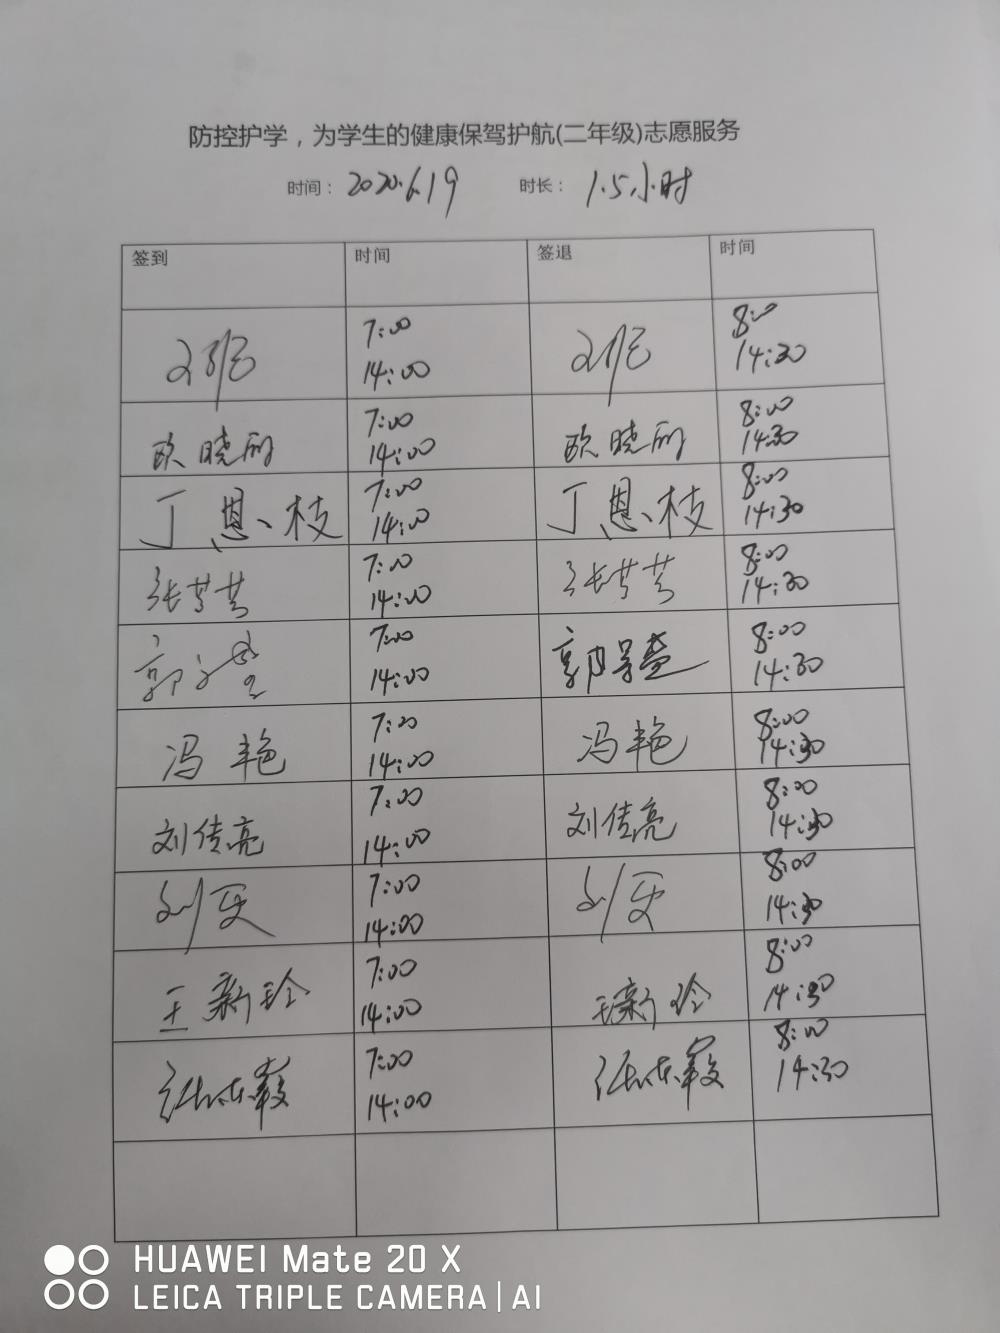 防控护学，为学生的健康保驾护航(二年级)志愿服务
时间： 2020.6.19 时长： 1.5小时
签到 时间 签退 时间
7:00 8:00
14:00 14:30
欧晓丽 7:00 欧晓丽 8:00
14:00 14:30
丁恩枝 7:00 丁恩枝 8:00
14:00 14:30
张芳芳 7:00 张芳芳 8:00
14:00 14:30
郭 7:00 郭 8:00
14:00 14:30
冯艳 7:00 冯艳 8:00
14:00 14:30
刘佳亮 7:00 刘佳亮 8:00
14:00 14:30
刘 7:00 刘 8:00
14:00 14:30
王新玲 7:00 王新玲 8:00
14:00 14:30
7:00 8:00
14:00 14:30
HUAWEI Mate 20 X
LEICA TRIPLE CAMERA | AI